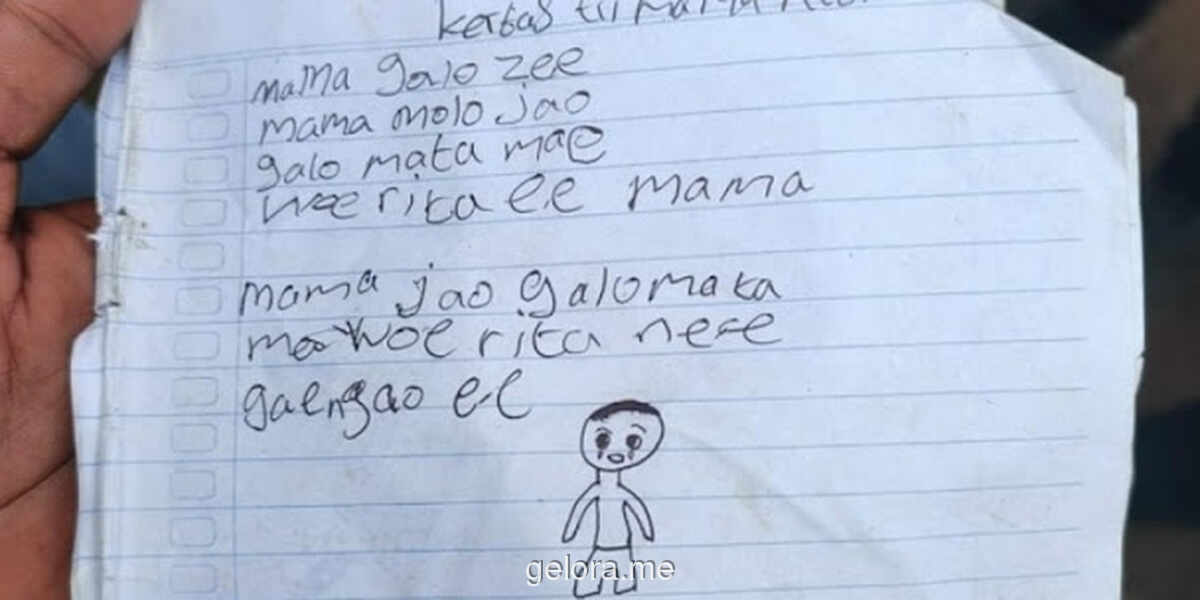 kertas tii mama
mama galo zee
mama molo jao
galo mata mae
woe rita ee mama
mama jao galo mata
mae woe rita nee
gaengao ee
gelora.me